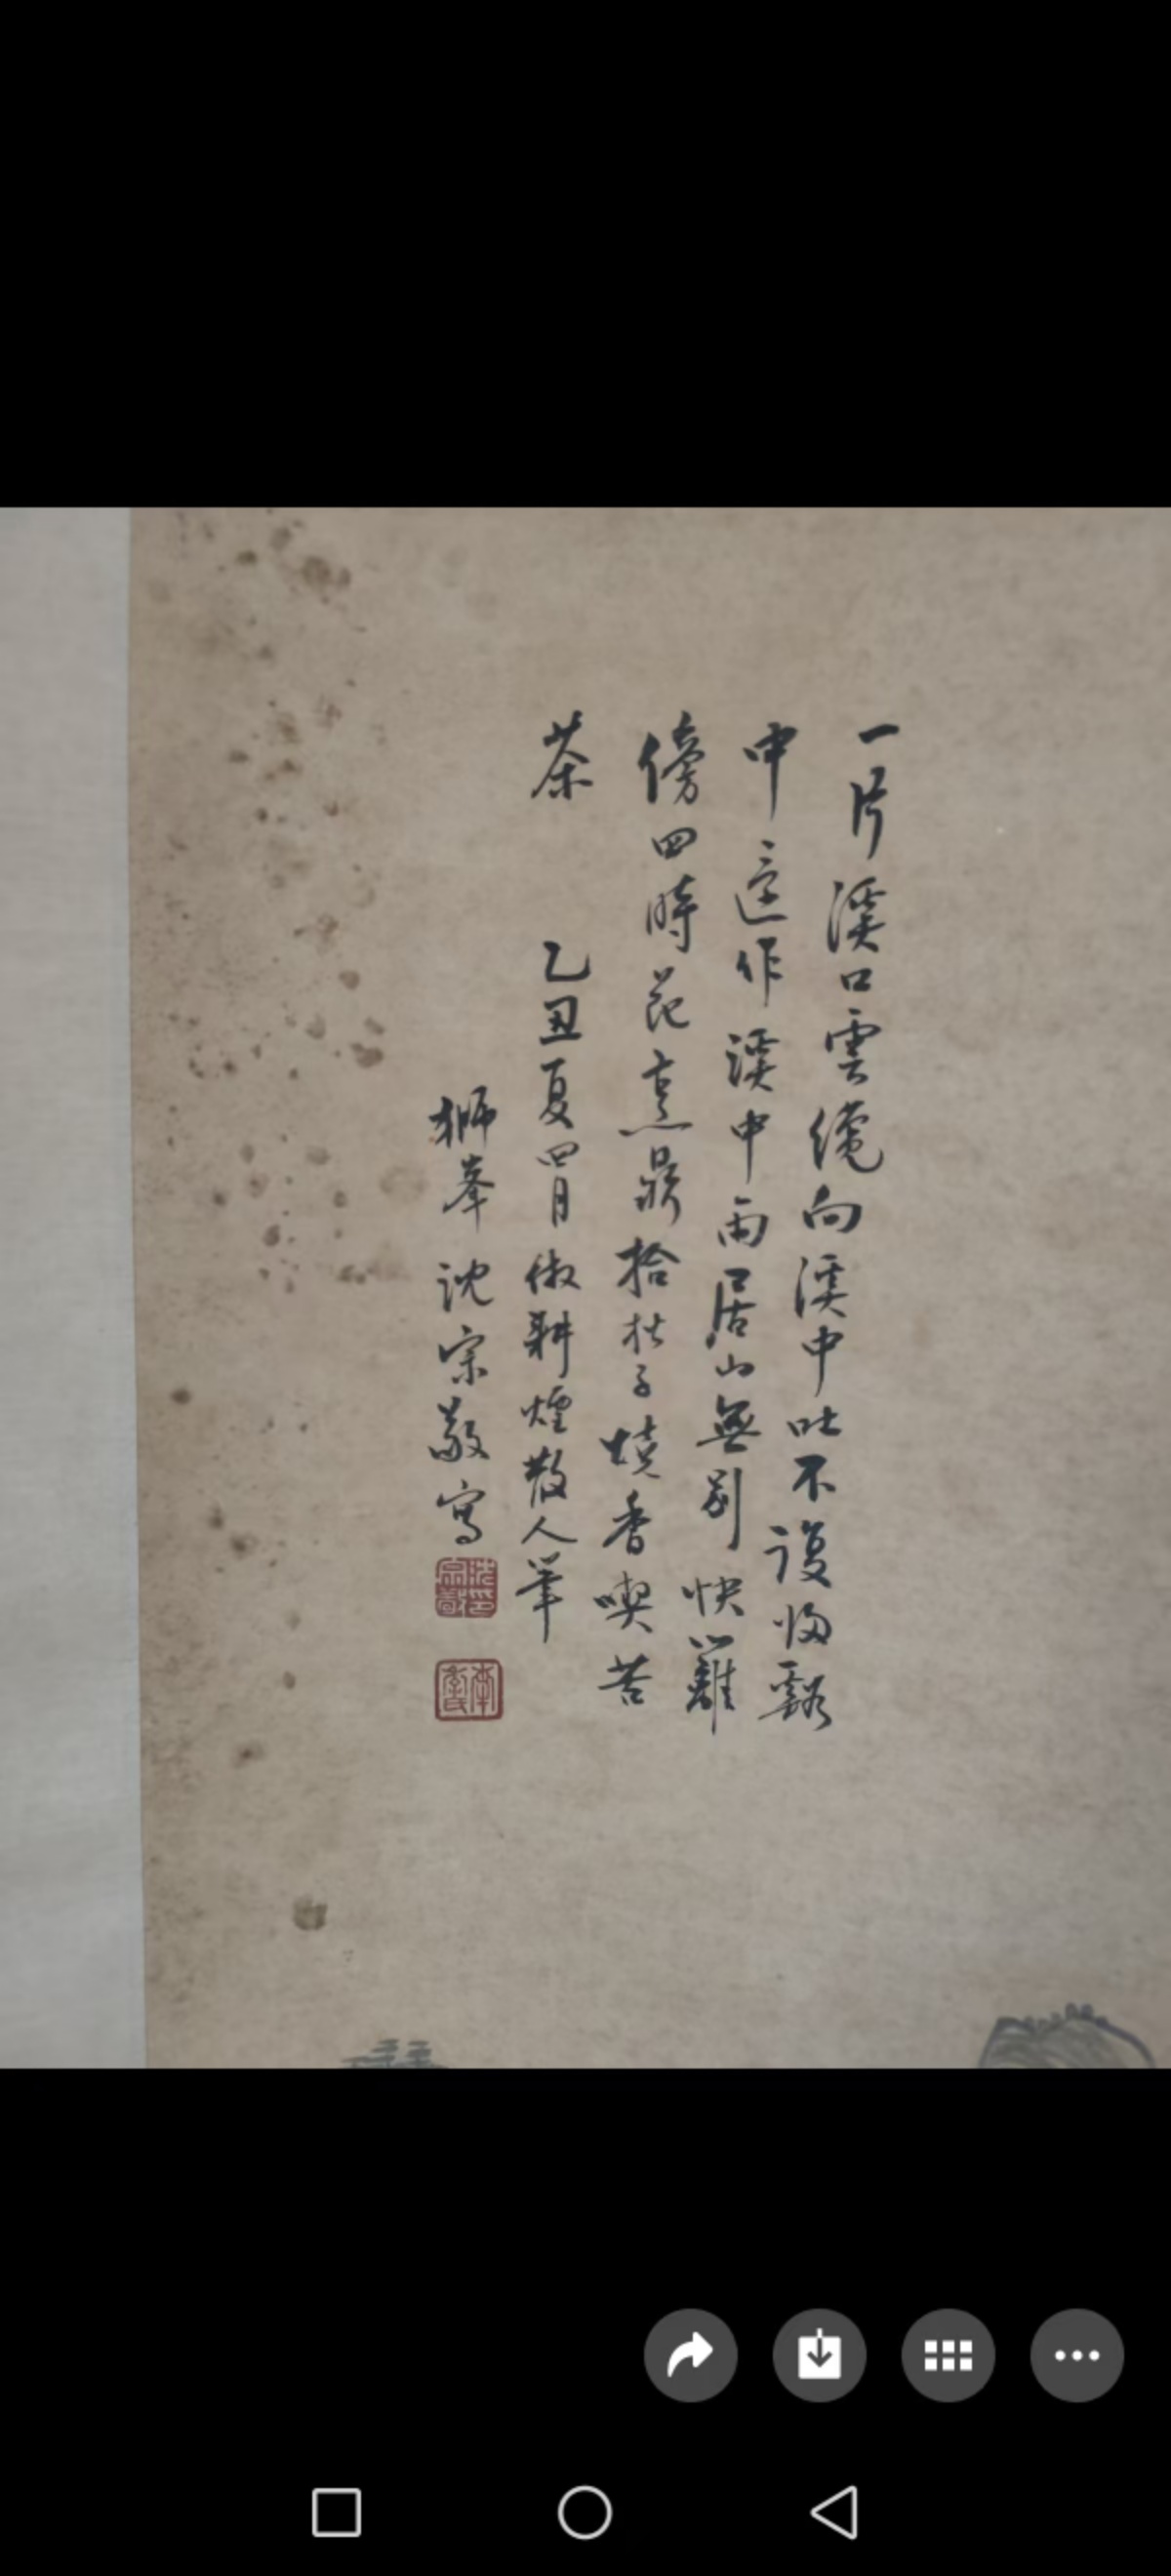 一片溪口雲纔向溪中吐不復歸谿
中還作溪中雨居山無別快籬
傍四時花烹鼎拾松子燒香喫苦
茶 乙丑夏四月倣耕煙散人筆
獅峯沈宗敬寫
沈印宗敬